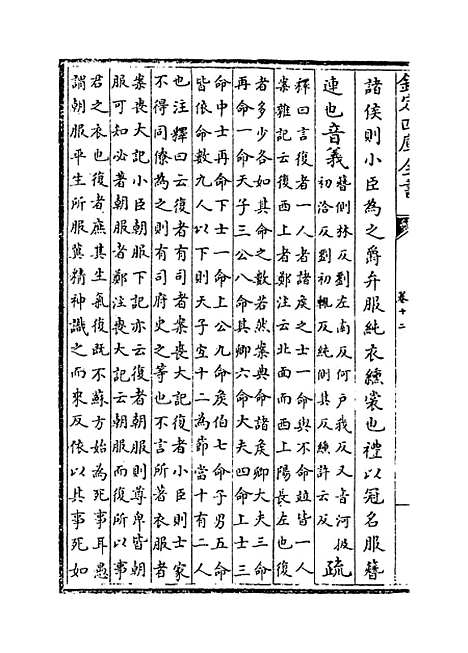 欽定四庫全書
卷十二
諸侯則小臣為之爵弁服純衣纁裳也禮以冠名服簪
連也音義
簪側林反劉左南反何户我反又音河披
初洽反劉初輒反純側其反纁許云反
疏
釋曰言復者一人者諸侯之士一命與不命並皆一人
案雜記云復西上者鄭注云北面而西上陽長左也復
者多少各如其命之數若然案典命諸侯卿大夫三命
再命一命天子三公八命其卿六命大夫四命上士三
命中士再命下士一命上公九命侯伯七命子男五命
皆依命數九人以下則天子宜十二為節當十有二人
也注釋曰云復者有司者案喪大記復者小臣則士家
不得同僚為之則有司府史之等也不言所著衣服者
案喪大記小臣朝服下記亦云復者朝服則尊卑皆朝
服可知必著朝服者鄭注喪大記云朝服而復所以事
君之衣也復者庶其生氣復既不蘇方始為死事耳愚
謂朝服平生所服冀精神識之而來反依以其事死如